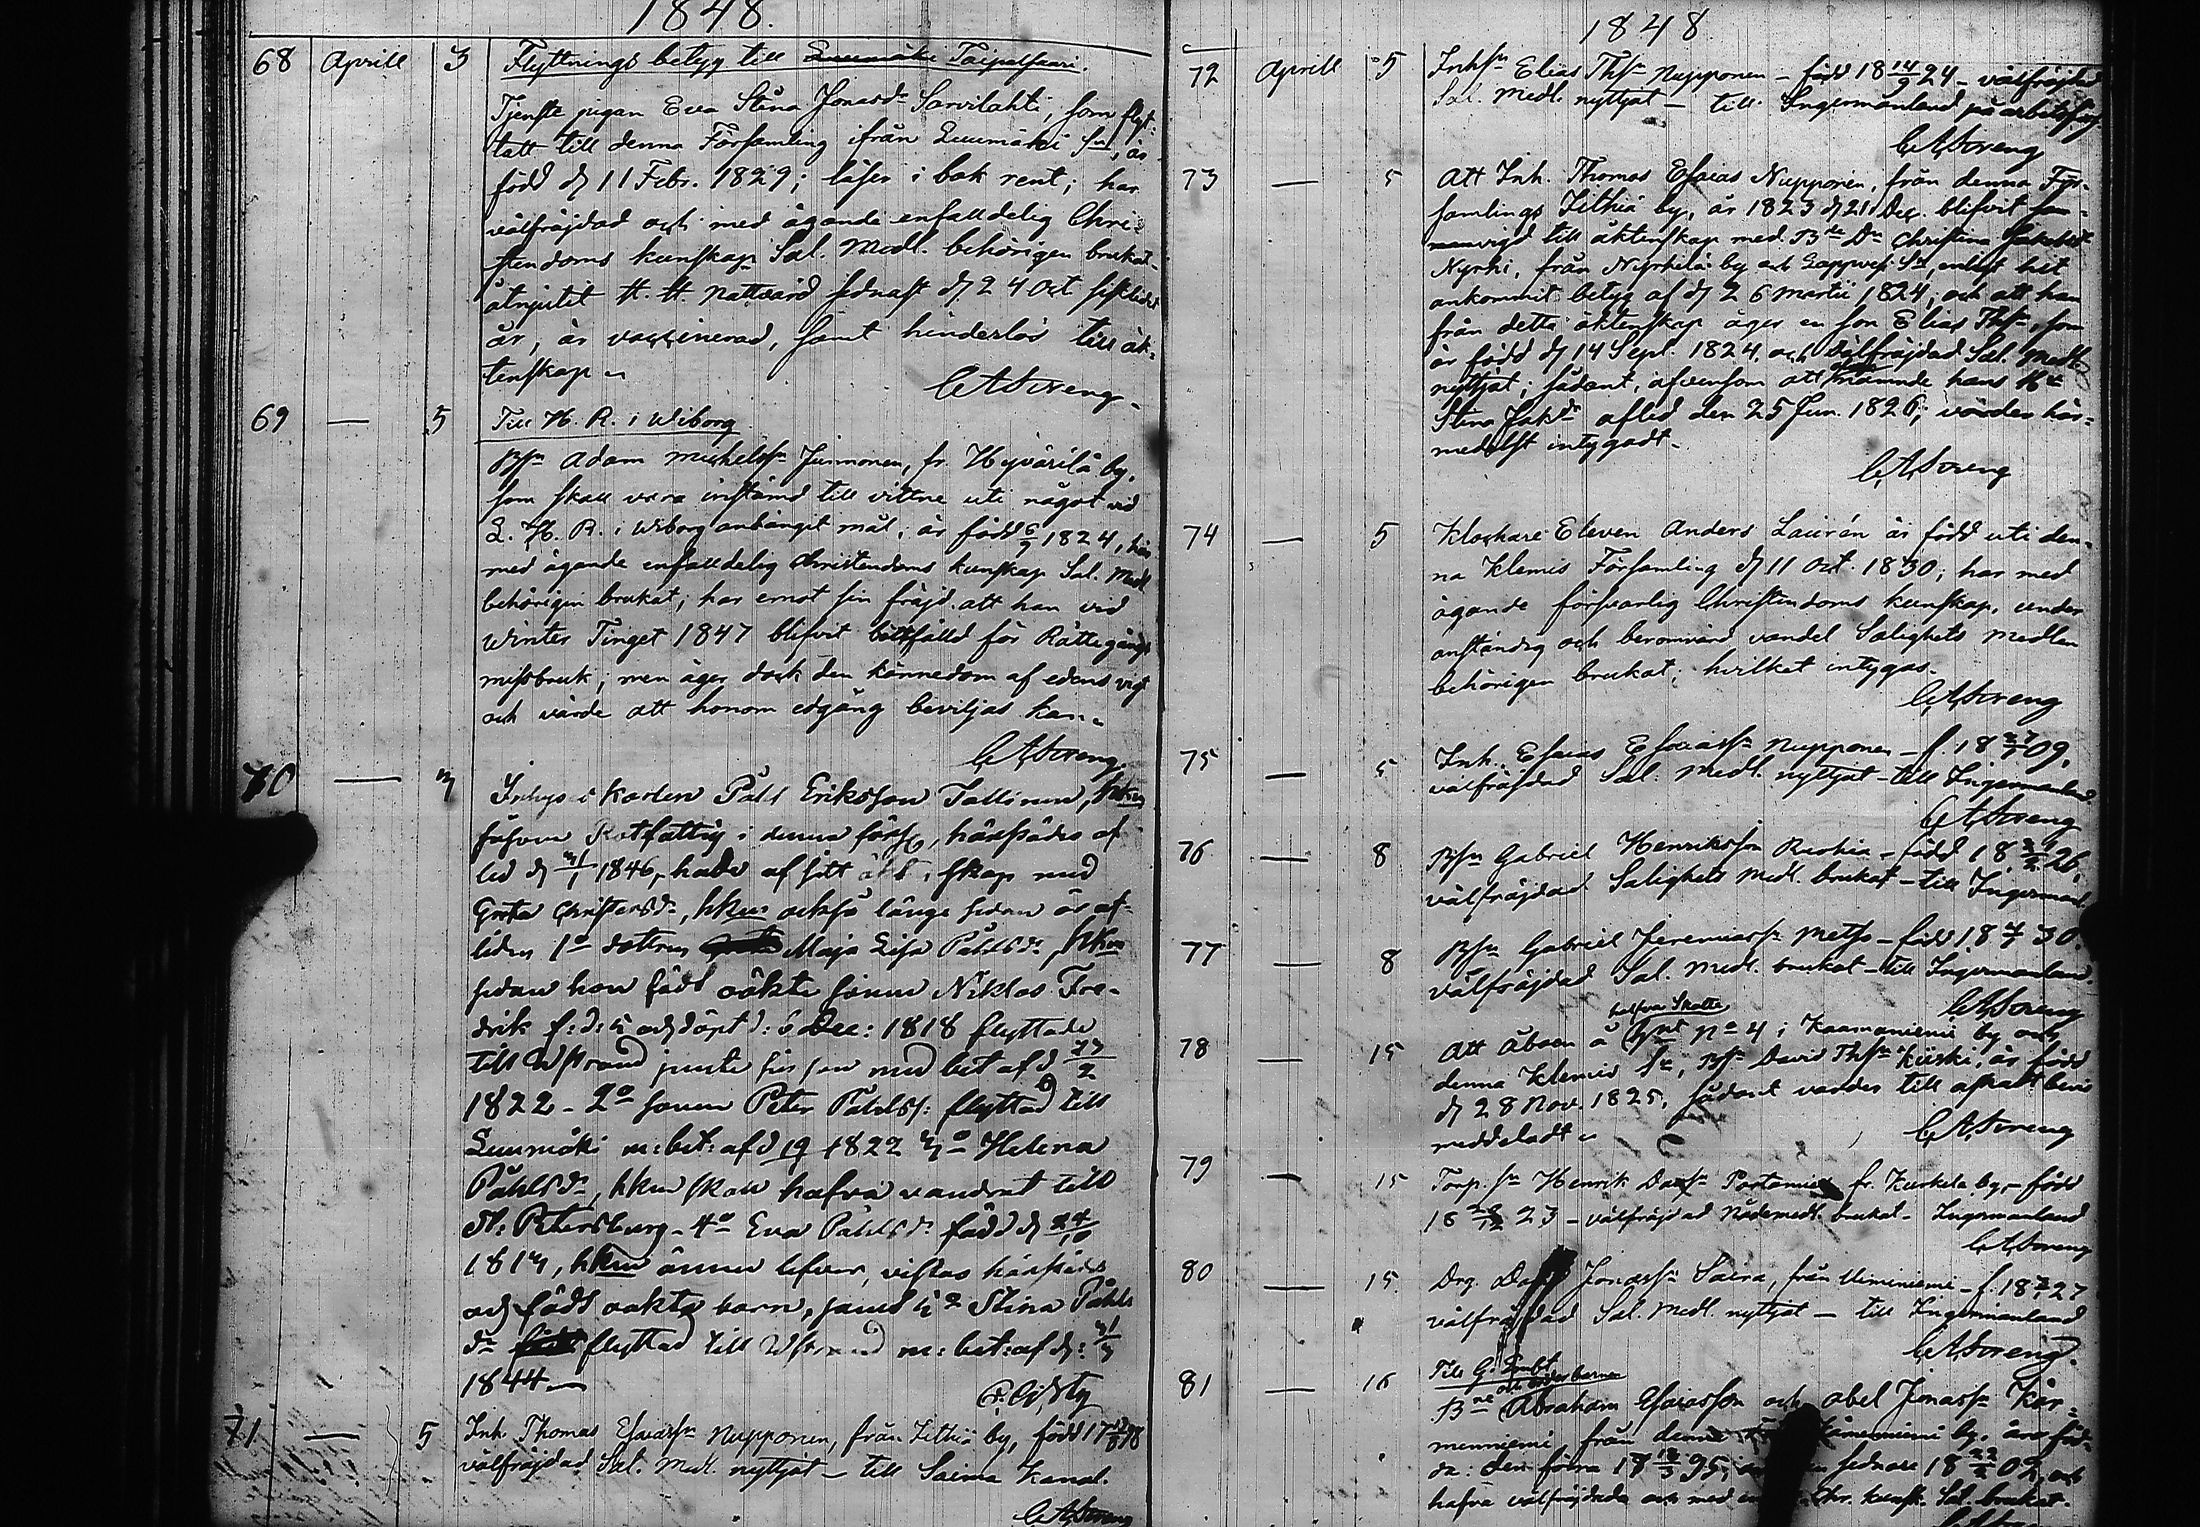 1848.
68 Aprill 3 Flyttnings betyg till Luumäki Taipalsaari.
Tjenste pigan Eva Stina Jonasdr Sarvilahti, som flyt:
tatt till denna Församling ifrån Luumäki Sn, är
född d 11 Febr. 1829; läser i bok rent; har
välfräjdad och med ägande enfalldelig Chri-
stendoms kunskap Sal. Medl. behörigen brukat-
åtnjutit H. H. Nattvard sednast d. 24 Oct sistlidet
år, är vaccinerad, samt hinderlös till äk-
tenskap
CASoreng
69 — 5 Till H. R. i Wiborg
Bsn Adam Michelssn Junnonen, fr. Hyvärilä by,
som skall vara instämd till vittne uti något vid
L. H. R. i Wiborg anhängit mål; är född 6/9 1824, har
med ägande enfalldelig Christendoms kunskap Sal. Medl
behörigen brukat; har emot sin fräjd att han vid
Winter Tinget 1847 blifvit bötfälld för Rättegångs
missbruk; men äger dock den kännedom af edens vigt
och värde att honom edgång beviljas kan
CASoreng
70 — Inhys i Karlen Påhl Eriksson Tallinen,
såsom Rotfattig i denna förs, härstädes af
led d 1846, hade af sitt äkt skap med
Greta Christersdr, hken också länge sedan är af-
liden 1o dottren Maja Lisa Påhlsdr, hken
sedan hon född oäkta sonen Niklas Fre-
drik f: d: 5 och döpt d: 6 Dec: 1818 flyttade
till Wstrand med bet af d
1822 - 2o sonen Peter Påhlss: flyttad till
Luumäki m: bet: af d 19 1822 3o Helena
Påhlsdr, hken skall hafva vandrat till
St: Petersburg - 4o Eva Påhlsdr född d 24/10
1813, hken ännu lefver, vistas härstädes
och född oäkta barn, samt 5o Stina Påhls
dr flyttad till Wstrand m: bet: af d:
1844
71 — 5 Inh. Thomas Esaiassn Nupponen, från Lithiä by, född
välfräjdad Sal. Medl. nyttjat — till Saima Kanal.
CASoreng
1848
72 Aprill 5 Inhsn Elias Thsn Nupponen - född 18 14/9 24 - välfräjdad
Sal. Medl. nyttjat — till Ingermanland på arbetsfo
CASoreng
73 — 5 Att Inh. Thomas Esaias Nupponen, från denna För-
samlings Lithiä by, år 1823 d 21 Dec. blifvit sam-
manvigd till äktenskap med Bde Dr Christina Jakobsdr
Nyrhi, från Nyrhilä by och Lappvesi Sn, enligt hit
ankommit betyg af d 26 Martii 1824; och att han
från detta äktenskap äger en son Elias Thsn, som
är född d 14 Sept. 1824. och välfräjdad Sal. Medl
nyttjat; sådant, äfvensom att nämnde hans H
Stina Jakdr afled den 25 Jun. 1826, vardes här-
medelst intygadt-
CASoreng
74 — 5 Klockare Eleven Anders Laurén är född uti den-
na Klemis Församling d 11 Oct 1830; har med
ägande försvarlig Christendoms kunskap, under
anständig och berömvärd vandel Salighets Medlen
behörigen brukat; hvilket intygas-
CASoreng
75 — 5 Inh. Esaias Esaiassn Nupponen - f. 18 09,
välfräjdad Sal: Medl. nyttjat - till Ingermanland.
CASoreng
76 — 8 Bsn Gabriel Henriksson - född 18 26,
välfräjdad Salighets Medl. brukat - till Ingermanl.
77 — 8 Bsn Gabriel Jeremiassn Metso - född 18 30.
välfräjdad Sal. Medl. brukat - till Ingermanlan.
CASoreng
halfva Skatte
78 — 15 Att Åboen å hmt No 4 i Kaamaniemi by och
denna Klemis Sn, Bsn David Thssn Kiiski, är född
d 28 Nov. 1825, sådant vardes till afskattbevis
meddeladt
CASoreng
79 — 15 Torp. Sn Henrik Davsn fr. Kurkela by - född
18 23 - välfräjdad Nådemedl. brukat - Ingermanland
CASoreng
80 — 15. Drg. Jonassn Saira, från Uiminiemi - f. 18 27
välfräjdad Sal. Medl. nyttjat — till Ingermanland
CASoreng.
81 — 16 Till G.
Bne Abraham Esaiasson och Abel Jonassn Kär-
menniemi från denna by, äro föd-
da: den förra 18 12/3 95, sednare 18 22/2 02, och
hafva välfräjdade och med Chr. kunsk. Sal. brukat.